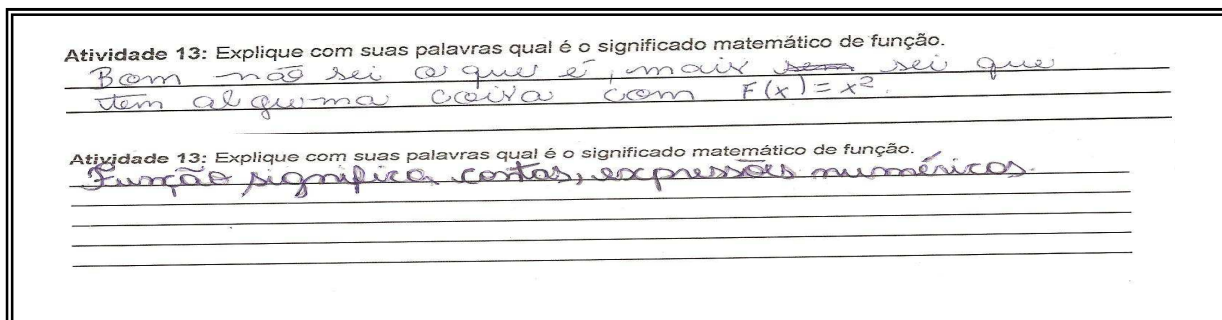 Atividade 13: Explique com suas palavras qual é o significado matemático de função.
Bom não sei o que é, mais sei que
tem alguma coisa com F(x) = x²
Atividade 13: Explique com suas palavras qual é o significado matemático de função.
Função significa contas, expressões numéricos.